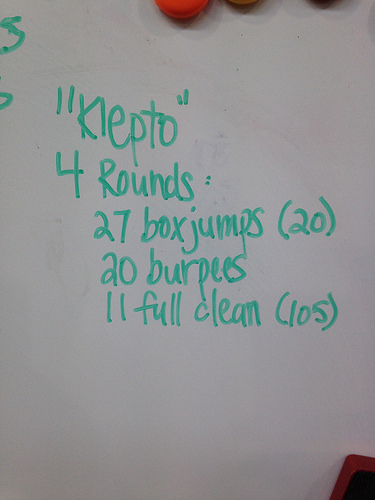 "Klepto"
4 Rounds:
27 box jumps (20)
20 burpees
11 full clean (105)